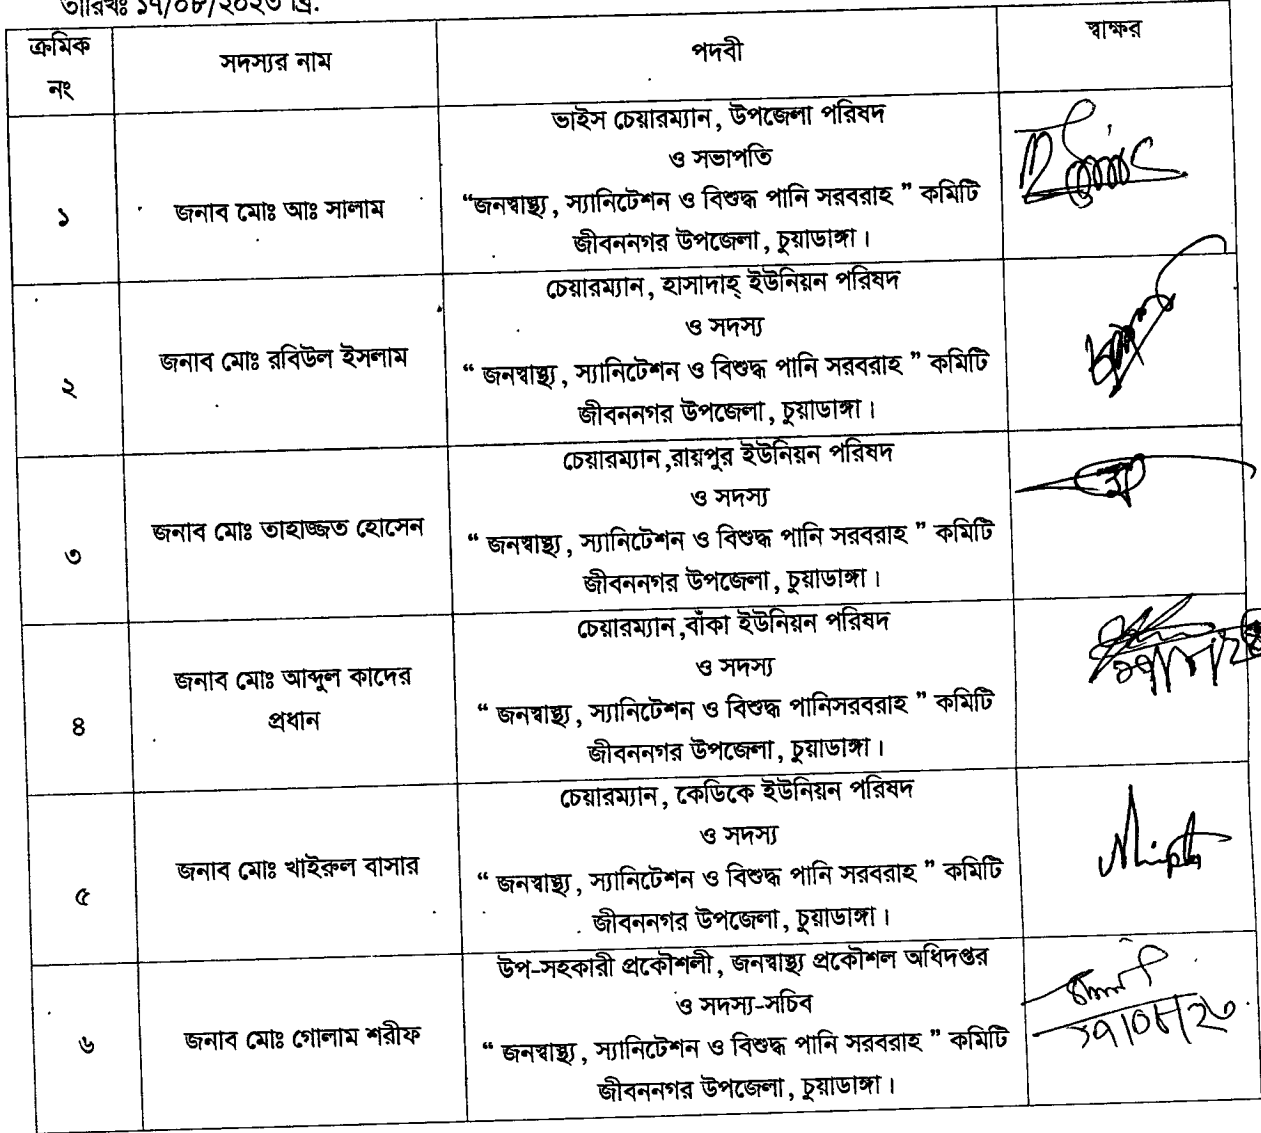 তারিখঃ ১৭/০৮/২০২৩ খ্রি.
ক্রমিক
নং
সদস্যর নাম
পদবী
স্বাক্ষর
১
জনাব মোঃ আঃ সালাম
ভাইস চেয়ারম্যান, উপজেলা পরিষদ
ও সভাপতি
“জনস্বাস্থ্য, স্যানিটেশন ও বিশুদ্ধ পানি সরবরাহ ” কমিটি
জীবননগর উপজেলা, চুয়াডাঙ্গা।
২
জনাব মোঃ রবিউল ইসলাম
চেয়ারম্যান, হাসাদাহ্ ইউনিয়ন পরিষদ
ও সদস্য
“ জনস্বাস্থ্য, স্যানিটেশন ও বিশুদ্ধ পানি সরবরাহ ” কমিটি
জীবননগর উপজেলা, চুয়াডাঙ্গা।
৩
জনাব মোঃ তাহাজ্জত হোসেন
চেয়ারম্যান,রায়পুর ইউনিয়ন পরিষদ
ও সদস্য
“ জনস্বাস্থ্য, স্যানিটেশন ও বিশুদ্ধ পানি সরবরাহ ” কমিটি
জীবননগর উপজেলা, চুয়াডাঙ্গা।
৪
জনাব মোঃ আব্দুল কাদের
প্রধান
চেয়ারম্যান,বাঁকা ইউনিয়ন পরিষদ
ও সদস্য
“ জনস্বাস্থ্য, স্যানিটেশন ও বিশুদ্ধ পানিসরবরাহ ” কমিটি
জীবননগর উপজেলা, চুয়াডাঙ্গা।
৫
জনাব মোঃ খাইরুল বাসার
চেয়ারম্যান, কেডিকে ইউনিয়ন পরিষদ
ও সদস্য
“ জনস্বাস্থ্য, স্যানিটেশন ও বিশুদ্ধ পানি সরবরাহ ” কমিটি
জীবননগর উপজেলা, চুয়াডাঙ্গা।
৬
জনাব মোঃ গোলাম শরীফ
উপ-সহকারী প্রকৌশলী, জনস্বাস্থ্য প্রকৌশল অধিদপ্তর
ও সদস্য-সচিব
“ জনস্বাস্থ্য, স্যানিটেশন ও বিশুদ্ধ পানি সরবরাহ ” কমিটি
জীবননগর উপজেলা, চুয়াডাঙ্গা।
১৭/০৮/২৩